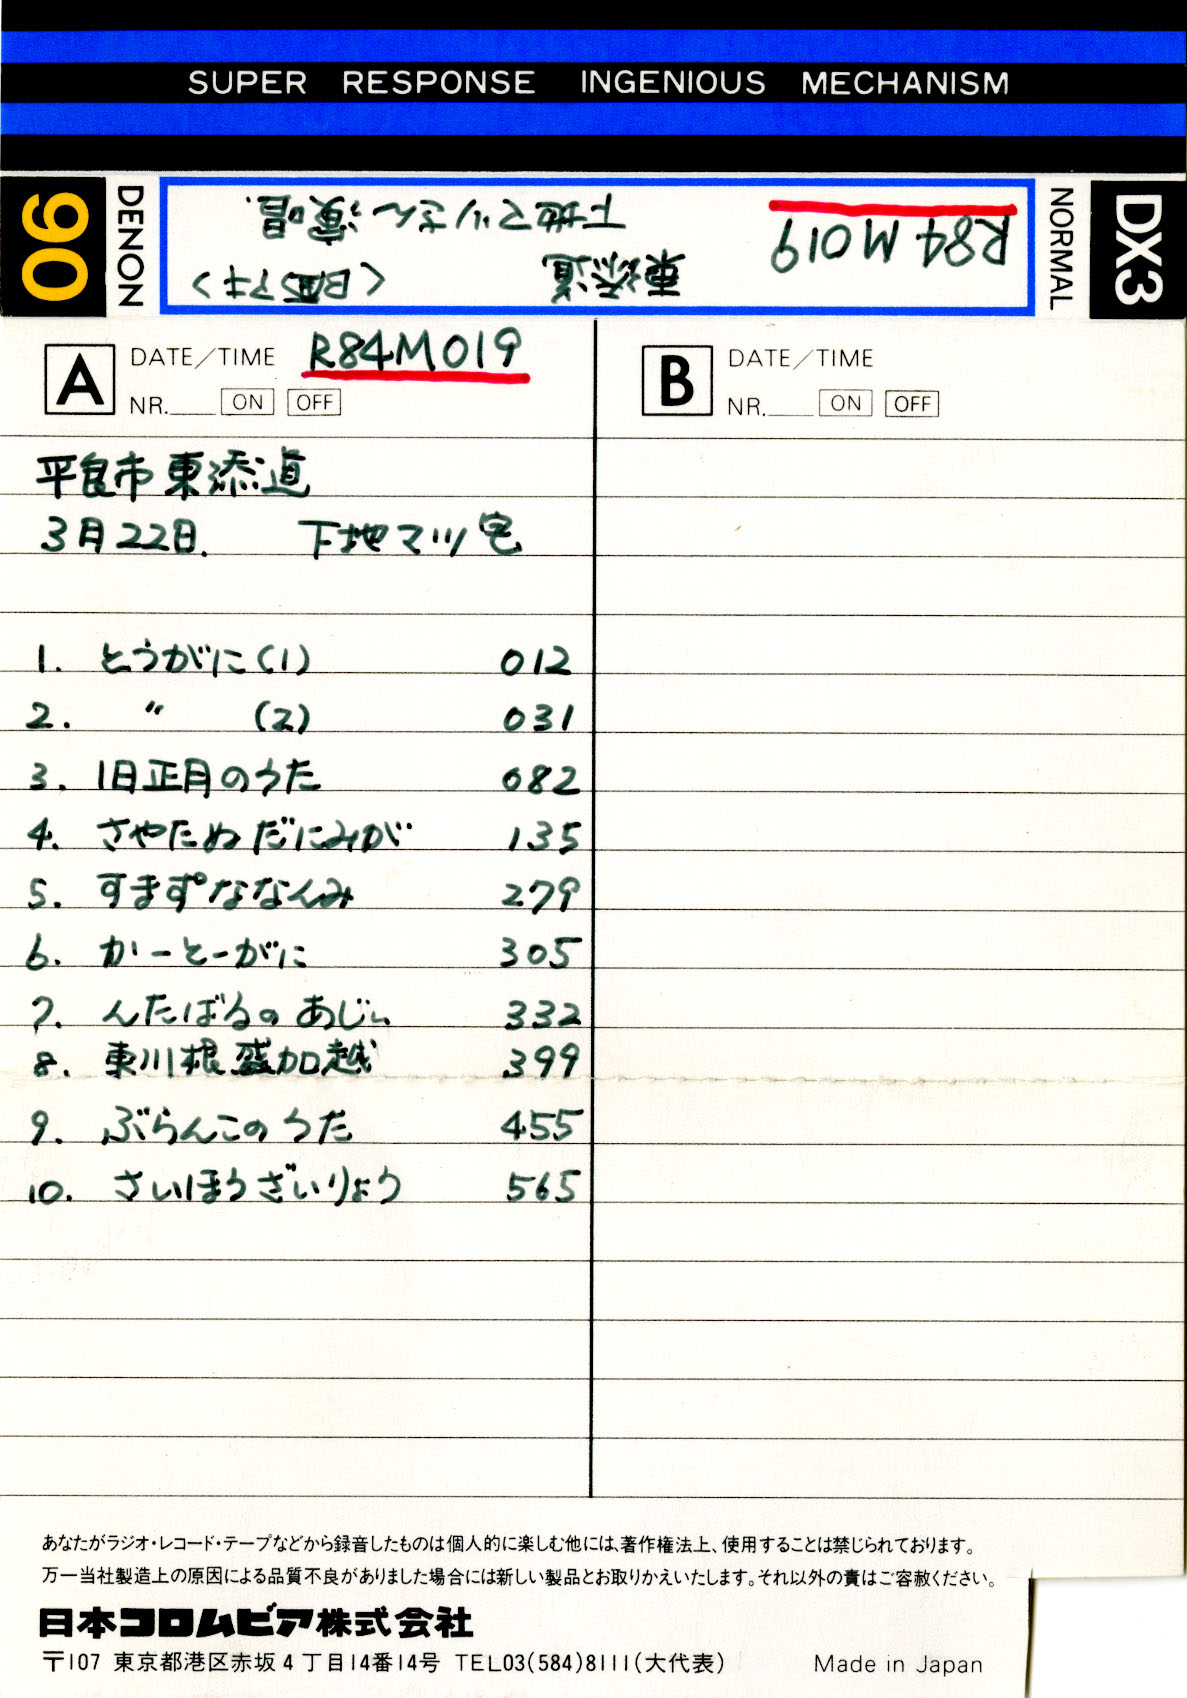 SUPER RESPONSE INGENIOUS MECHANISM
DX3
NORMAL
R84M019
東添道
下地マツさん演唱.
DENON
90
A DATE/TIME R84M019
NR. ON OFF
平良市東添道
3月22日. 下地マツ宅
1. とうがに(1) 012
2. 〃 (2) 031
3. 旧正月のうた 082
4. さやたぬだにみが 135
5. すまず゜ななんみ 279
6. かーとーがに 305
7. んたばるのあじ 332
8. 東川根盛加越 399
9. ぶらんこのうた 455
10. さいほうざいりょう 565
B DATE/TIME
NR. ON OFF
あなたがラジオ・レコード・テープなどから録音したものは個人的に楽しむ他には、著作権法上、使用することは禁じられております。
万一当社製造上の原因による品質不良がありました場合には新しい製品とお取りかえいたします。それ以外の責はご容赦ください。
日本コロムビア株式会社
〒107 東京都港区赤坂4丁目14番14号 TEL03(584)8111(大代表) Made in Japan